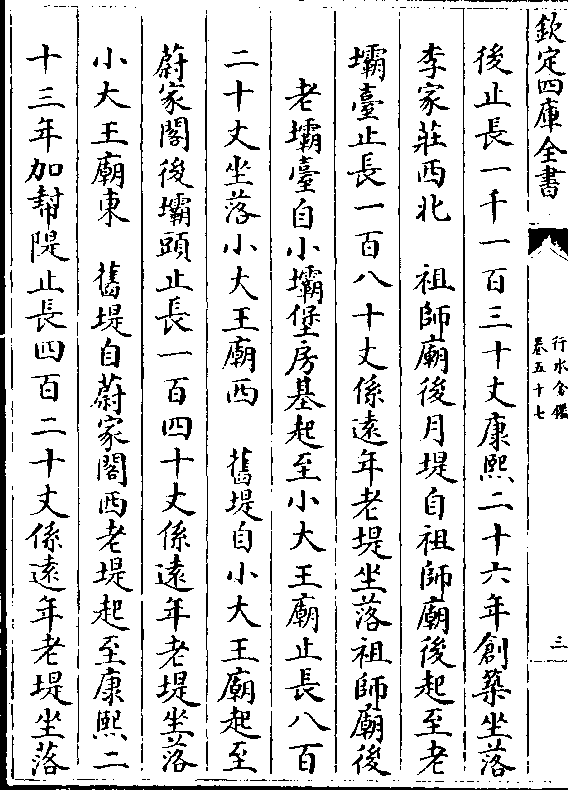 欽定四庫全書
行水金鑑
卷五十七
三
後止長一千一百三十丈康熙二十六年創築坐落
李家莊西北　祖師廟後月堤自祖師廟後起至老
壩臺止長一百八十丈係遠年老堤坐落祖師廟後
老壩臺自小壩堡房基起至小大王廟止長八百
二十丈坐落小大王廟西　舊堤自小大王廟起至
蔚家閣後壩頭止長一百四十丈係遠年老堤坐落
小大王廟東　舊堤自蔚家閣西老堤起至康熙二
十三年加幫隄止長四百二十丈係遠年老堤坐落